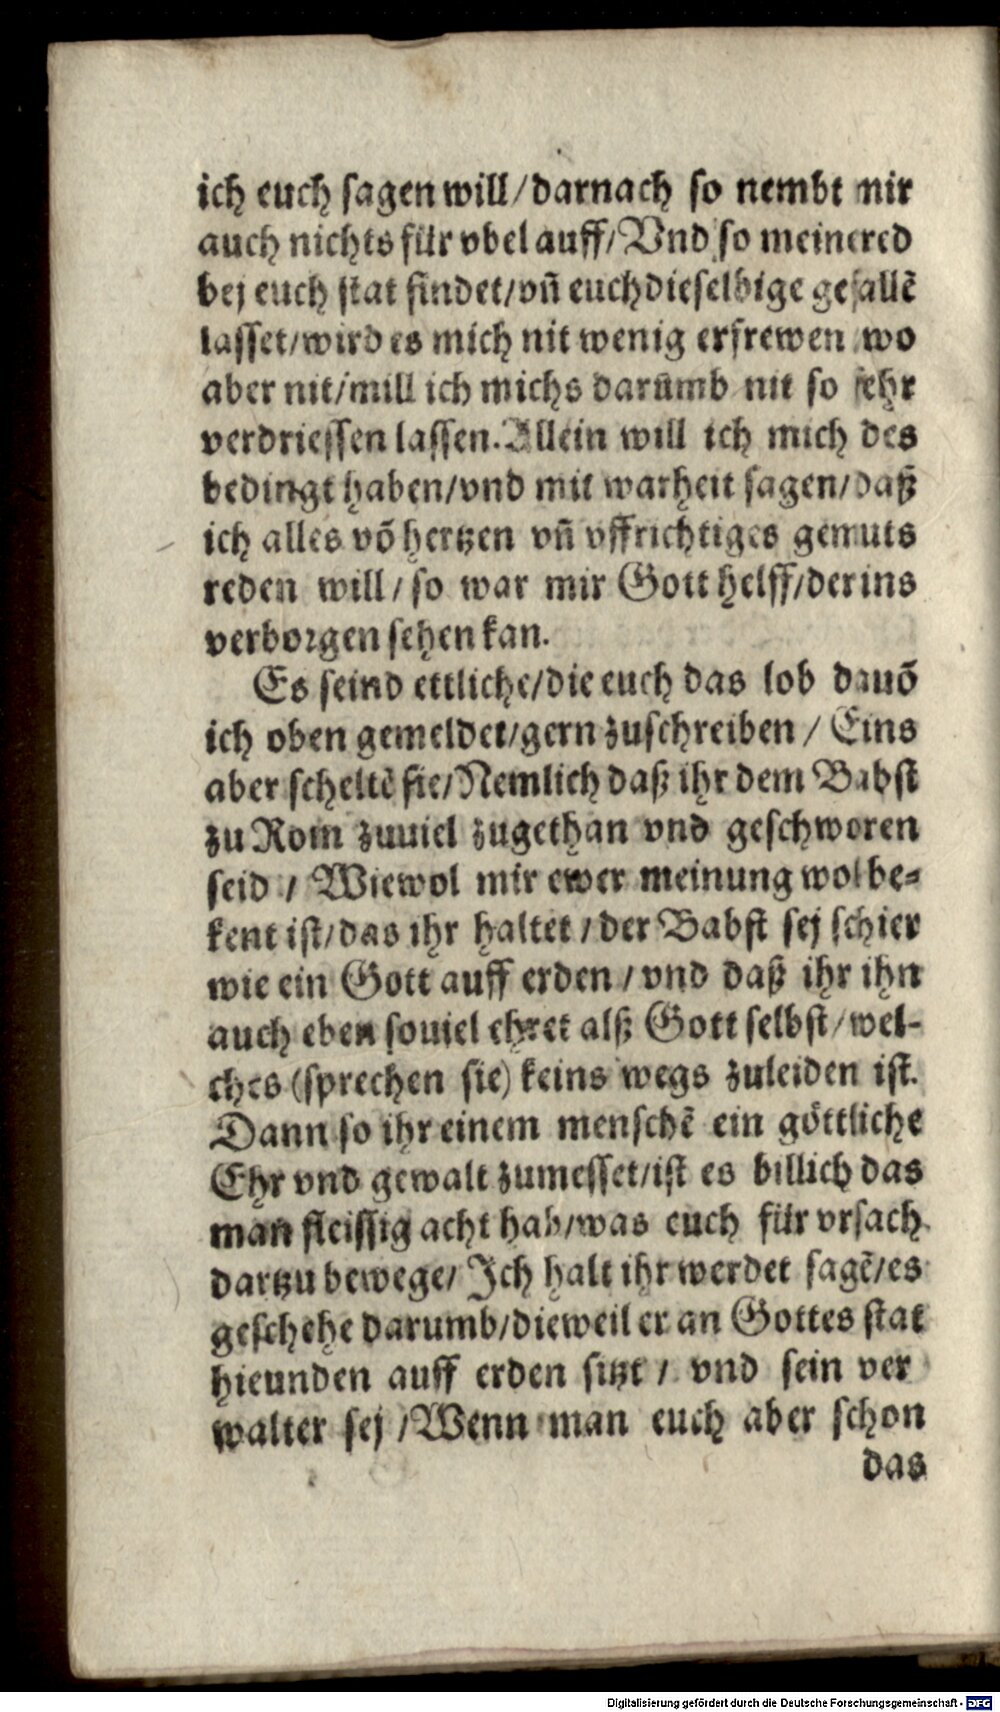 ich euch sagen will/darnach so nembt mir
auch nichts für vbel auff/Vnd so meinered
bej euch stat findet/vñ euchdieselbige gefallẽ
lasset/wird es mich nit wenig erfrewen wo
aber nit/will ich michs darumb nit so sehr
verdriessen lassen. Allein will ich mich des
bedingt haben/vnd mit warheit sagen/daß
ich alles võ hertzen vñ vffrichtiges gemuts
reden will/so war mir Gott helff/der ins
verborgen sehen kan.
Es seind ettliche/die euch das lob dauõ
ich oben gemeldet/gern zuschreiben / Eins
aber scheltẽ sie/Nemlich daß ihr dem Babst
zu Rom zuuiel zugethan vnd geschworen
seid / Wiewol mir ewer meinung wol be⸗
kent ist/das ihr haltet / der Babst sej schier
wie ein Gott auff erden / vnd daß ihr ihn
auch eben souiel ehret alß Gott selbst/wel-
ches (sprechen sie) keins wegs zuleiden ist.
Dann so ihr einem menschẽ ein göttliche
Ehr vnd gewalt zumesset/ist es billich das
man fleissig acht hab/was euch für vrsach
dartzu bewege/ Ich halt ihr werdet sagẽ/es
geschehe darumb/dieweil er an Gottes stat
hieunden auff erden sitzt / vnd sein ver
walter sej /Wenn man euch aber schon
das
Digitalisierung gefördert durch die Deutsche Forschungsgemeinschaft - DFG